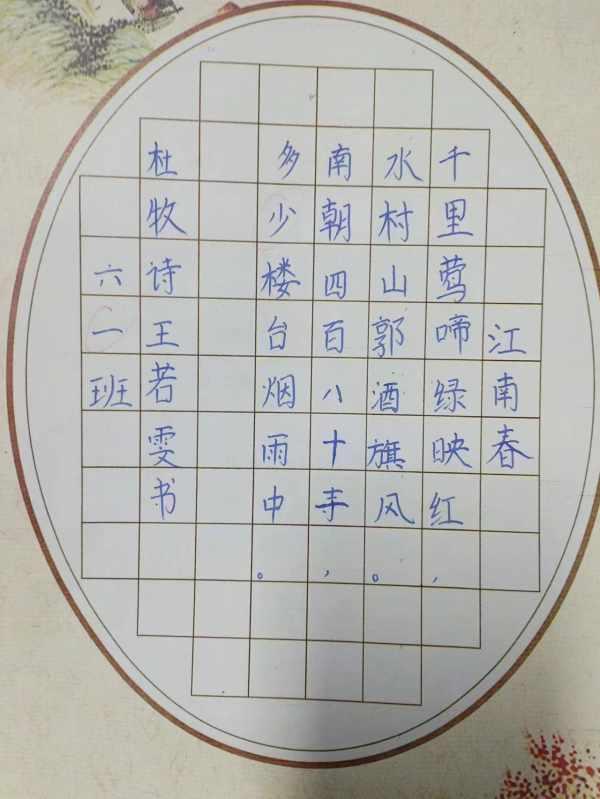 江南春
千里莺啼绿映红，
水村山郭酒旗风。
南朝四百八十寺，
多少楼台烟雨中。
杜牧诗王若雯书
六一班